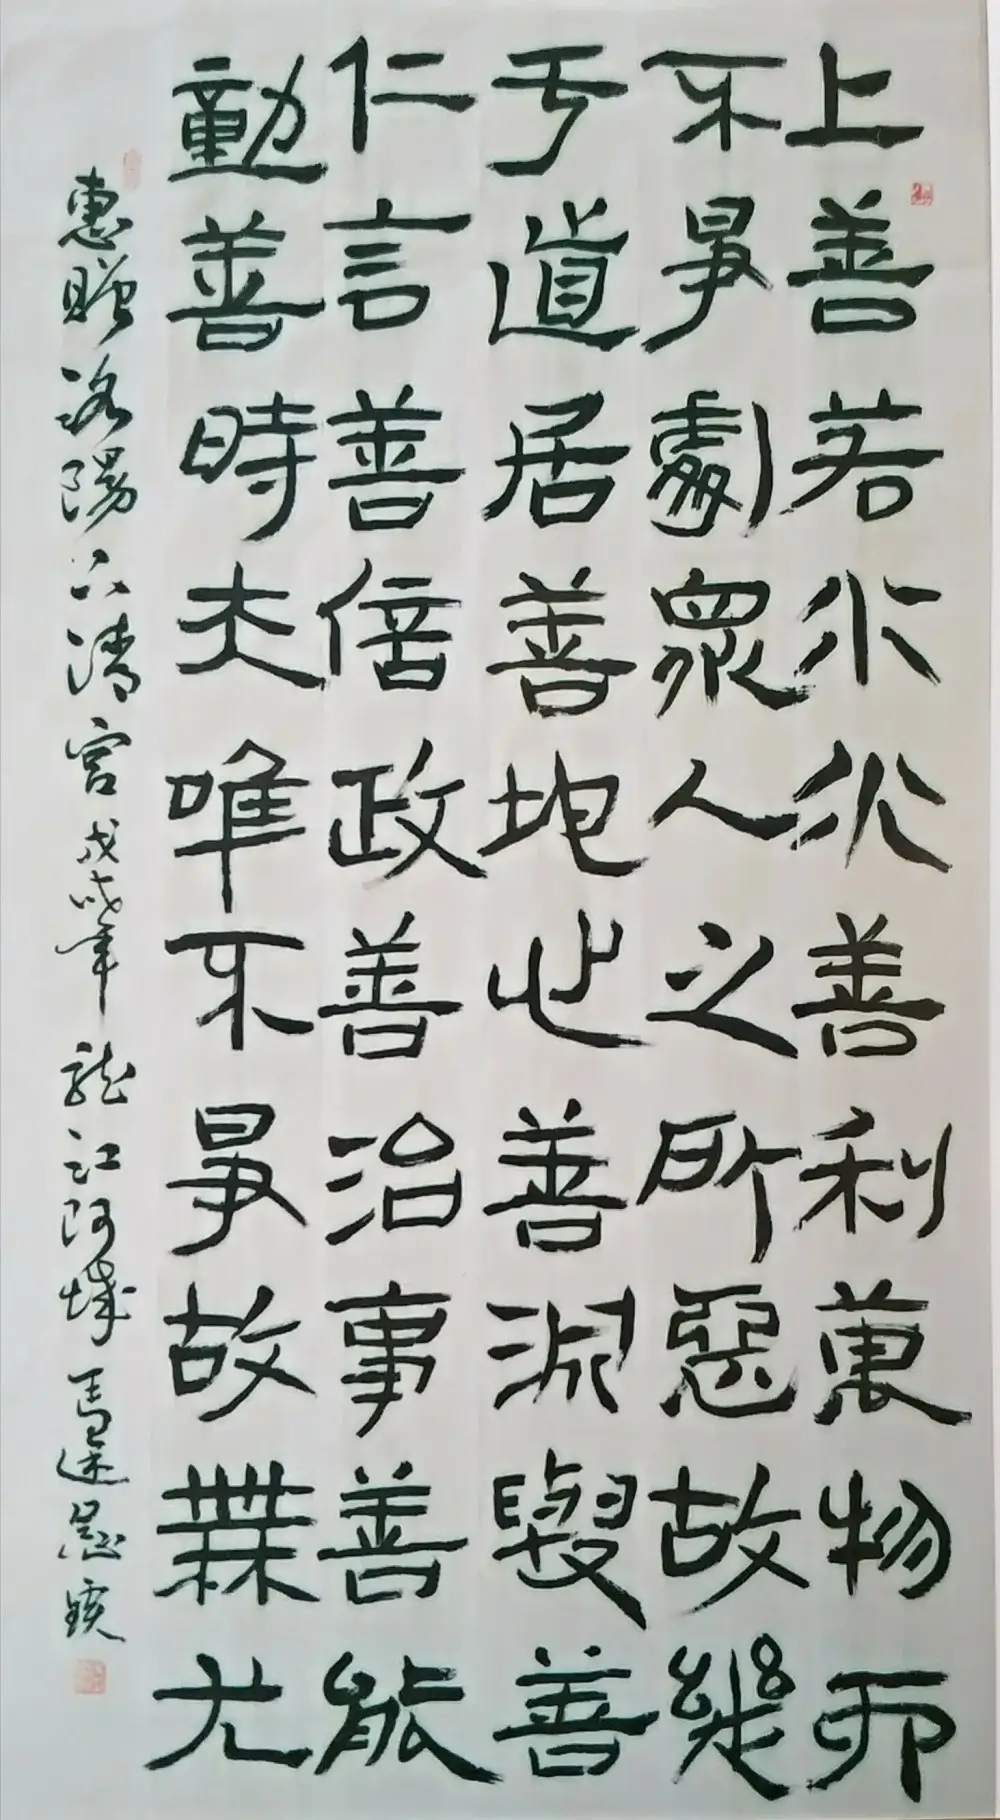 上善若水水善利萬物而
不爭劇眾人之所惡故幾
于道居善地心善淵與善
仁言善信政善治事善能
動善時夫唯不爭故無尤
惠贈洛陽下清宮戊戌年 龍江阿城馬